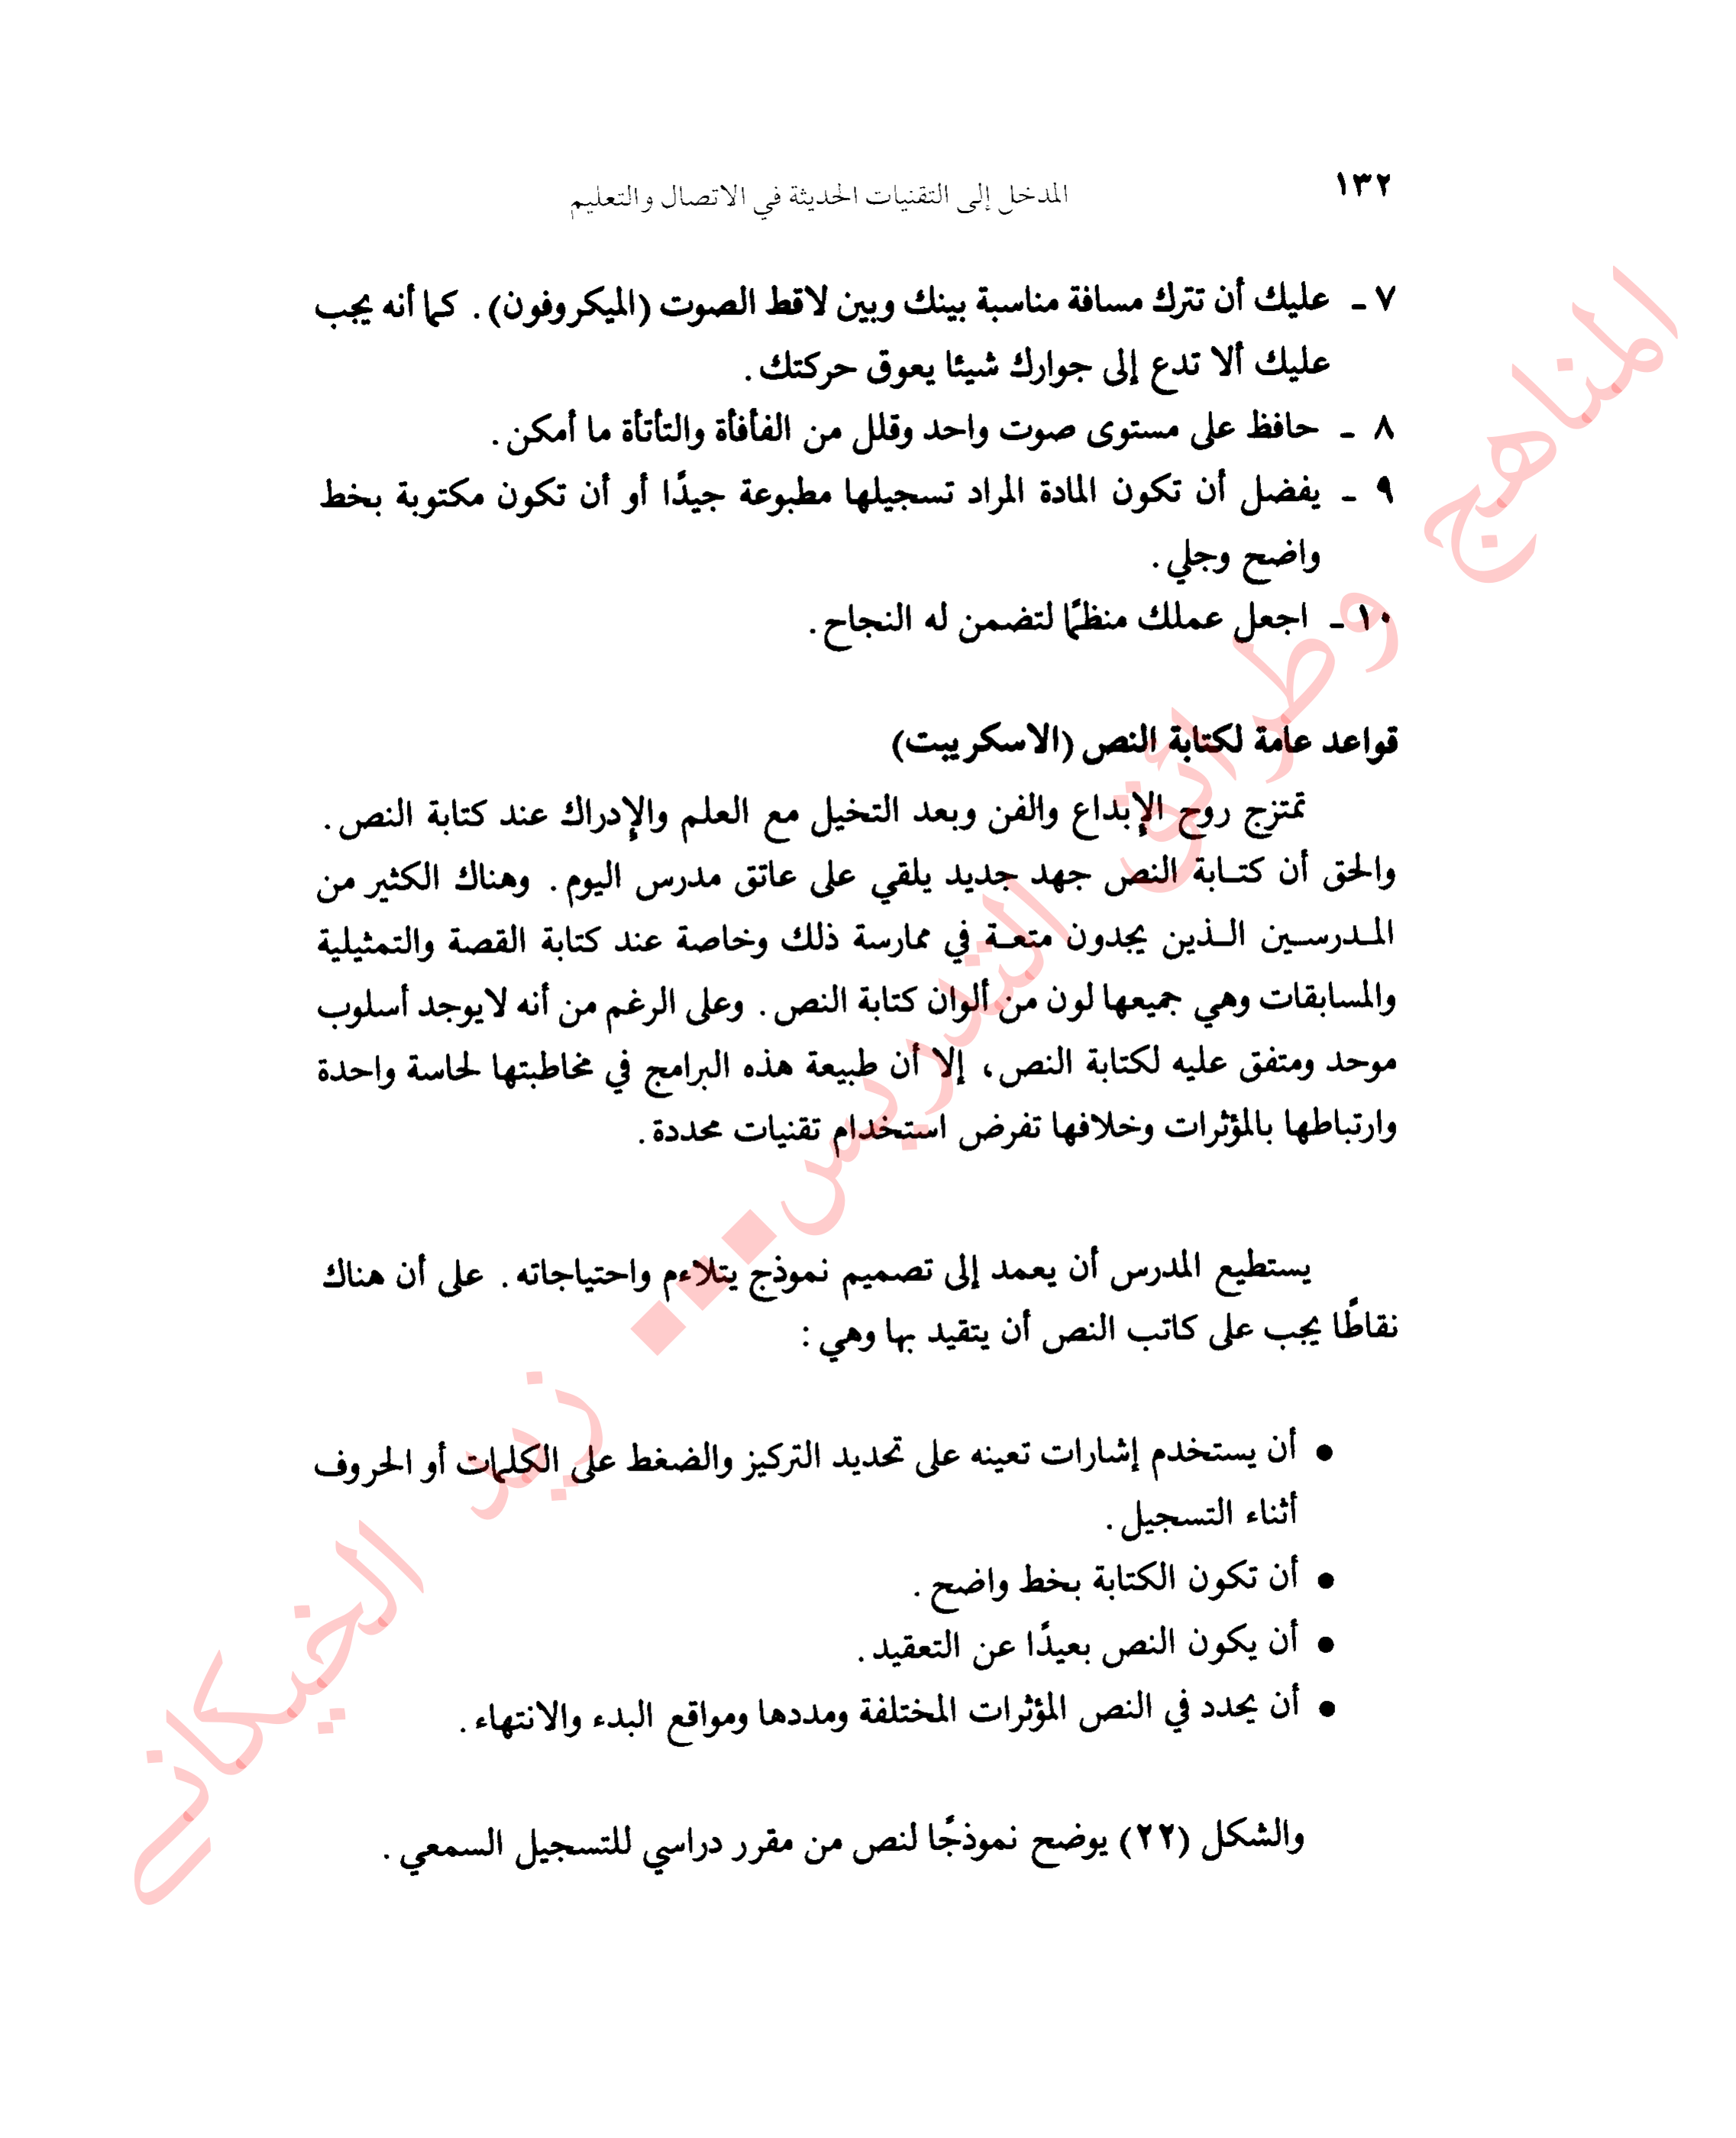 ١٣٢
المدخل إلى التقنيات الحديثة في الاتصال والتعليم
٧ ـ عليك أن تترك مسافة مناسبة بينك وبين لاقط الصوت (الميكروفون). كما أنه يجب
عليك ألا تدع إلى جوارك شيئا يعوق حركتك.
٨ ـ حافظ على مستوى صوت واحد وقلل من الفأفأة والتأتأة ما أمكن.
٩ ـ يفضل أن تكون المادة المراد تسجيلها مطبوعة جيدًا أو أن تكون مكتوبة بخط
واضح وجلي.
١٠ ـ اجعل عملك منظمًا لتضمن له النجاح.
قواعد عامة لكتابة النص (الاسكريبت)
تمتزج روح الإبداع والفن وبعد التخيل مع العلم والإدراك عند كتابة النص.
والحق أن كتـابة النص جهد جديد يلقي على عاتق مدرس اليوم. وهناك الكثير من
المـدرسـين الـذين يجدون متعـة في ممارسة ذلك وخاصة عند كتابة القصة والتمثيلية
والمسابقات وهي جميعها لون من ألوان كتابة النص. وعلى الرغم من أنه لايوجد أسلوب
موحد ومتفق عليه لكتابة النص، إلا أن طبيعة هذه البرامج في مخاطبتها لحاسة واحدة
وارتباطها بالمؤثرات وخلافها تفرض استخدام تقنيات محددة.
يستطيع المدرس أن يعمد إلى تصميم نموذج يتلاءم واحتياجاته. على أن هناك
نقاطًا يجب على كاتب النص أن يتقيد بها وهي:
● أن يستخدم إشارات تعينه على تحديد التركيز والضغط على الكلمات أو الحروف
أثناء التسجيل.
● أن تكون الكتابة بخط واضح.
● أن يكون النص بعيدًا عن التعقيد.
● أن يحدد في النص المؤثرات المختلفة ومددها ومواقع البدء والانتهاء.
والشكل (٢٢) يوضح نموذجًا لنص من مقرر دراسي للتسجيل السمعي.
المناهج وطرائق التدريس... زيد الخيكاني